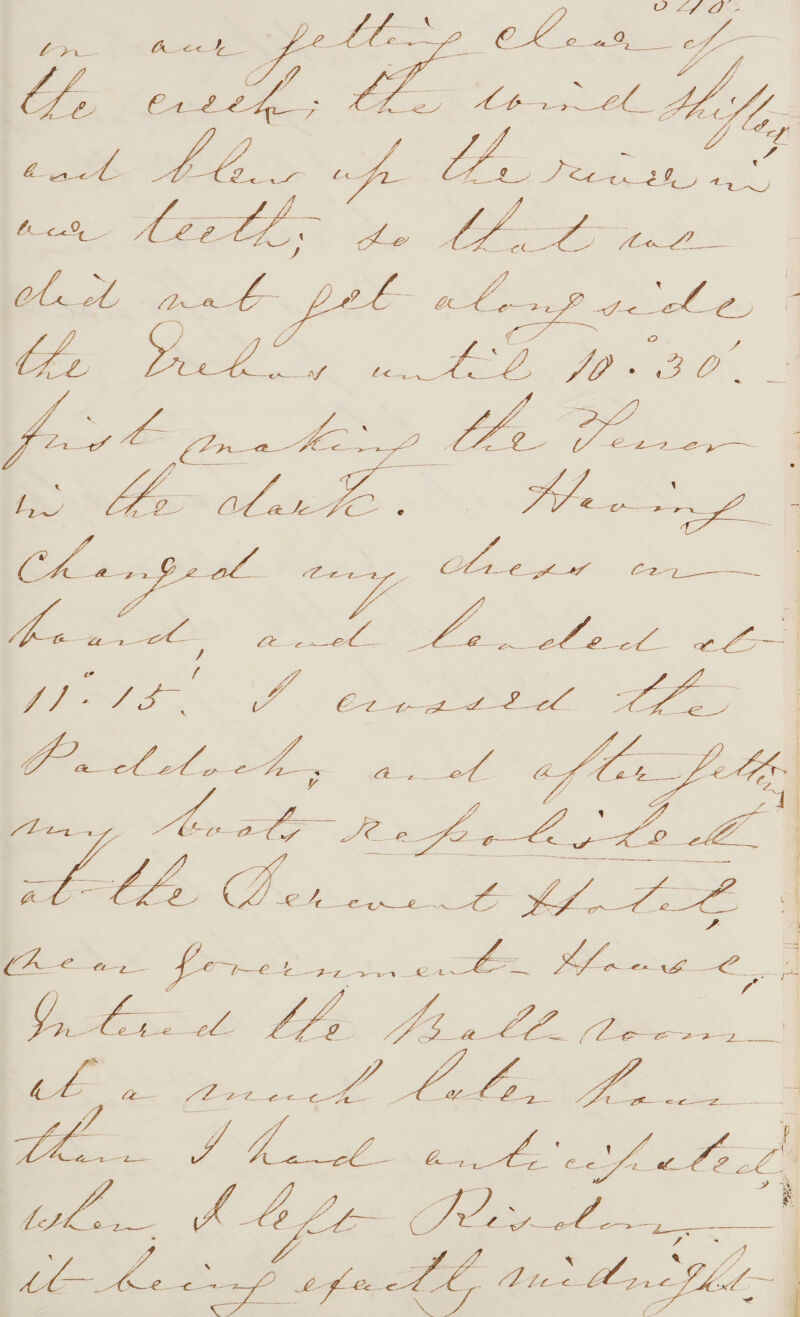 on our getting clear of
the creek; the wind shifted,
and blew up the river in
our teeth; so that we
did not get alongside
the Erebus until 10°. 30'. –
first making the Terror
in the dark. Having
Changed my dress on
board, and landed at
11°. 15'. I crossed the
Paddock; and after getting
my boots repolished
at the Derwent Hotel,
near Government-House,
Entered the Ball-room
at a much later hour
than I had anticipated,
when I left Risdon,
it being exactly midnight.